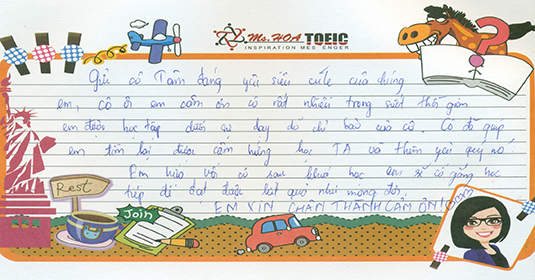 Ms. HOA TOEIC
INSPIRATION MESSENGER
Gửi cô Tâm đáng yêu siêu cute của chúng
em, cô ơi em cảm ơn cô rất nhiều trong suốt thời gian
em được học tập dưới sự dạy dỗ chỉ bảo của cô. Cô đã giúp
em tìm lại được cảm hứng học TA và thêm yêu quý nó.
Em hứa với cô sau khoá học em sẽ cố gắng học
tiếp để đạt được kết quả như mong đợi.
EM XIN CHÂN THÀNH CẢM ƠN CÔ
Rest
Join